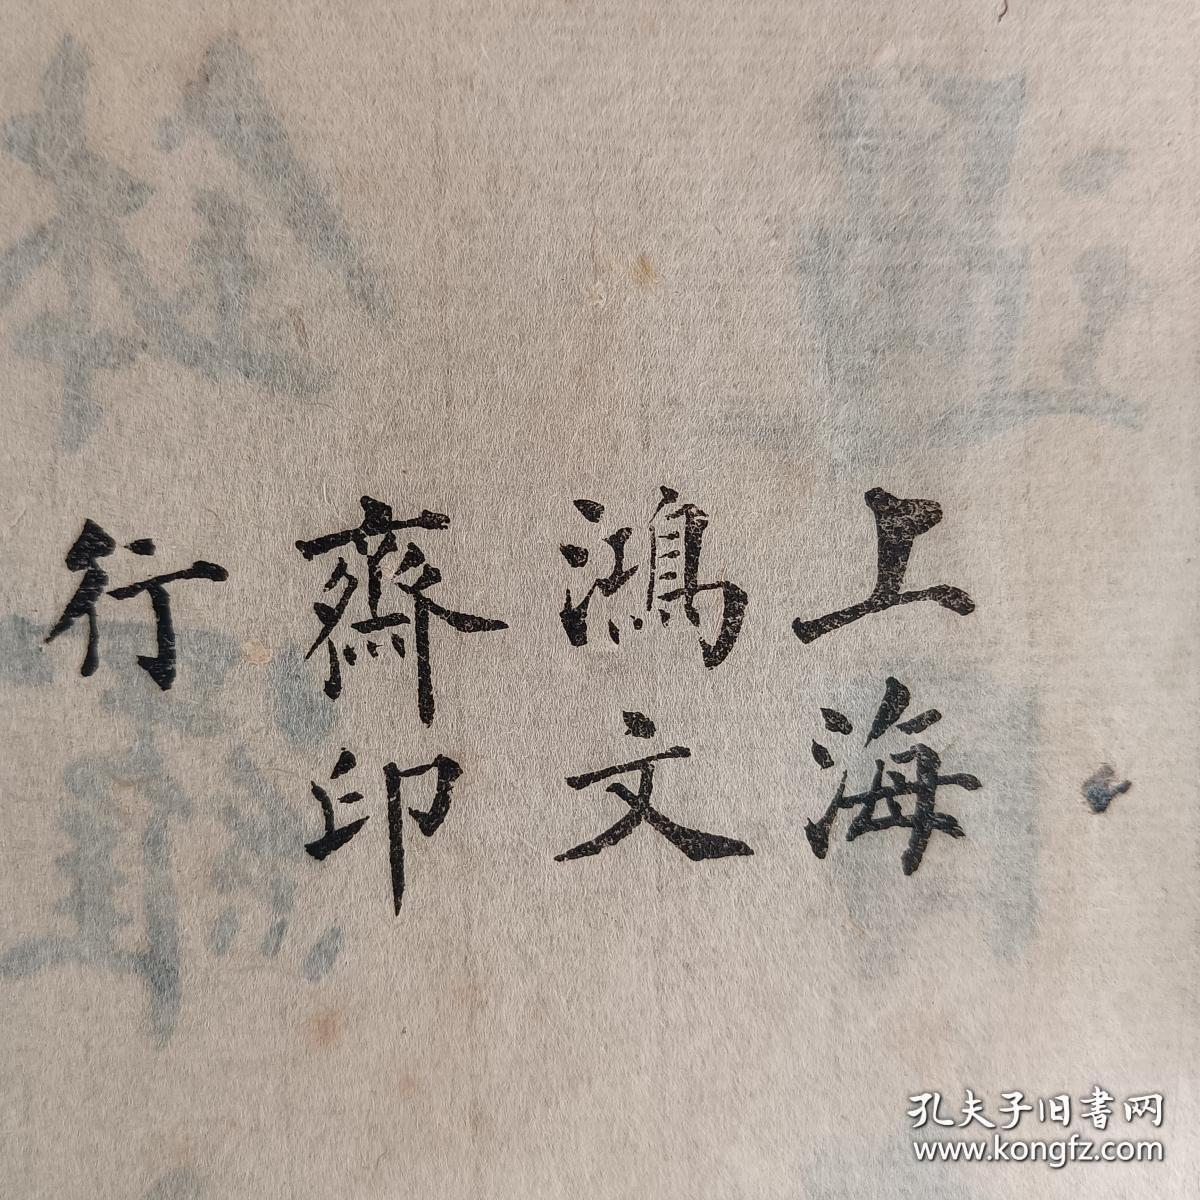 上海
鴻文
齋印
行
孔夫子旧書网
www.kongfz.com